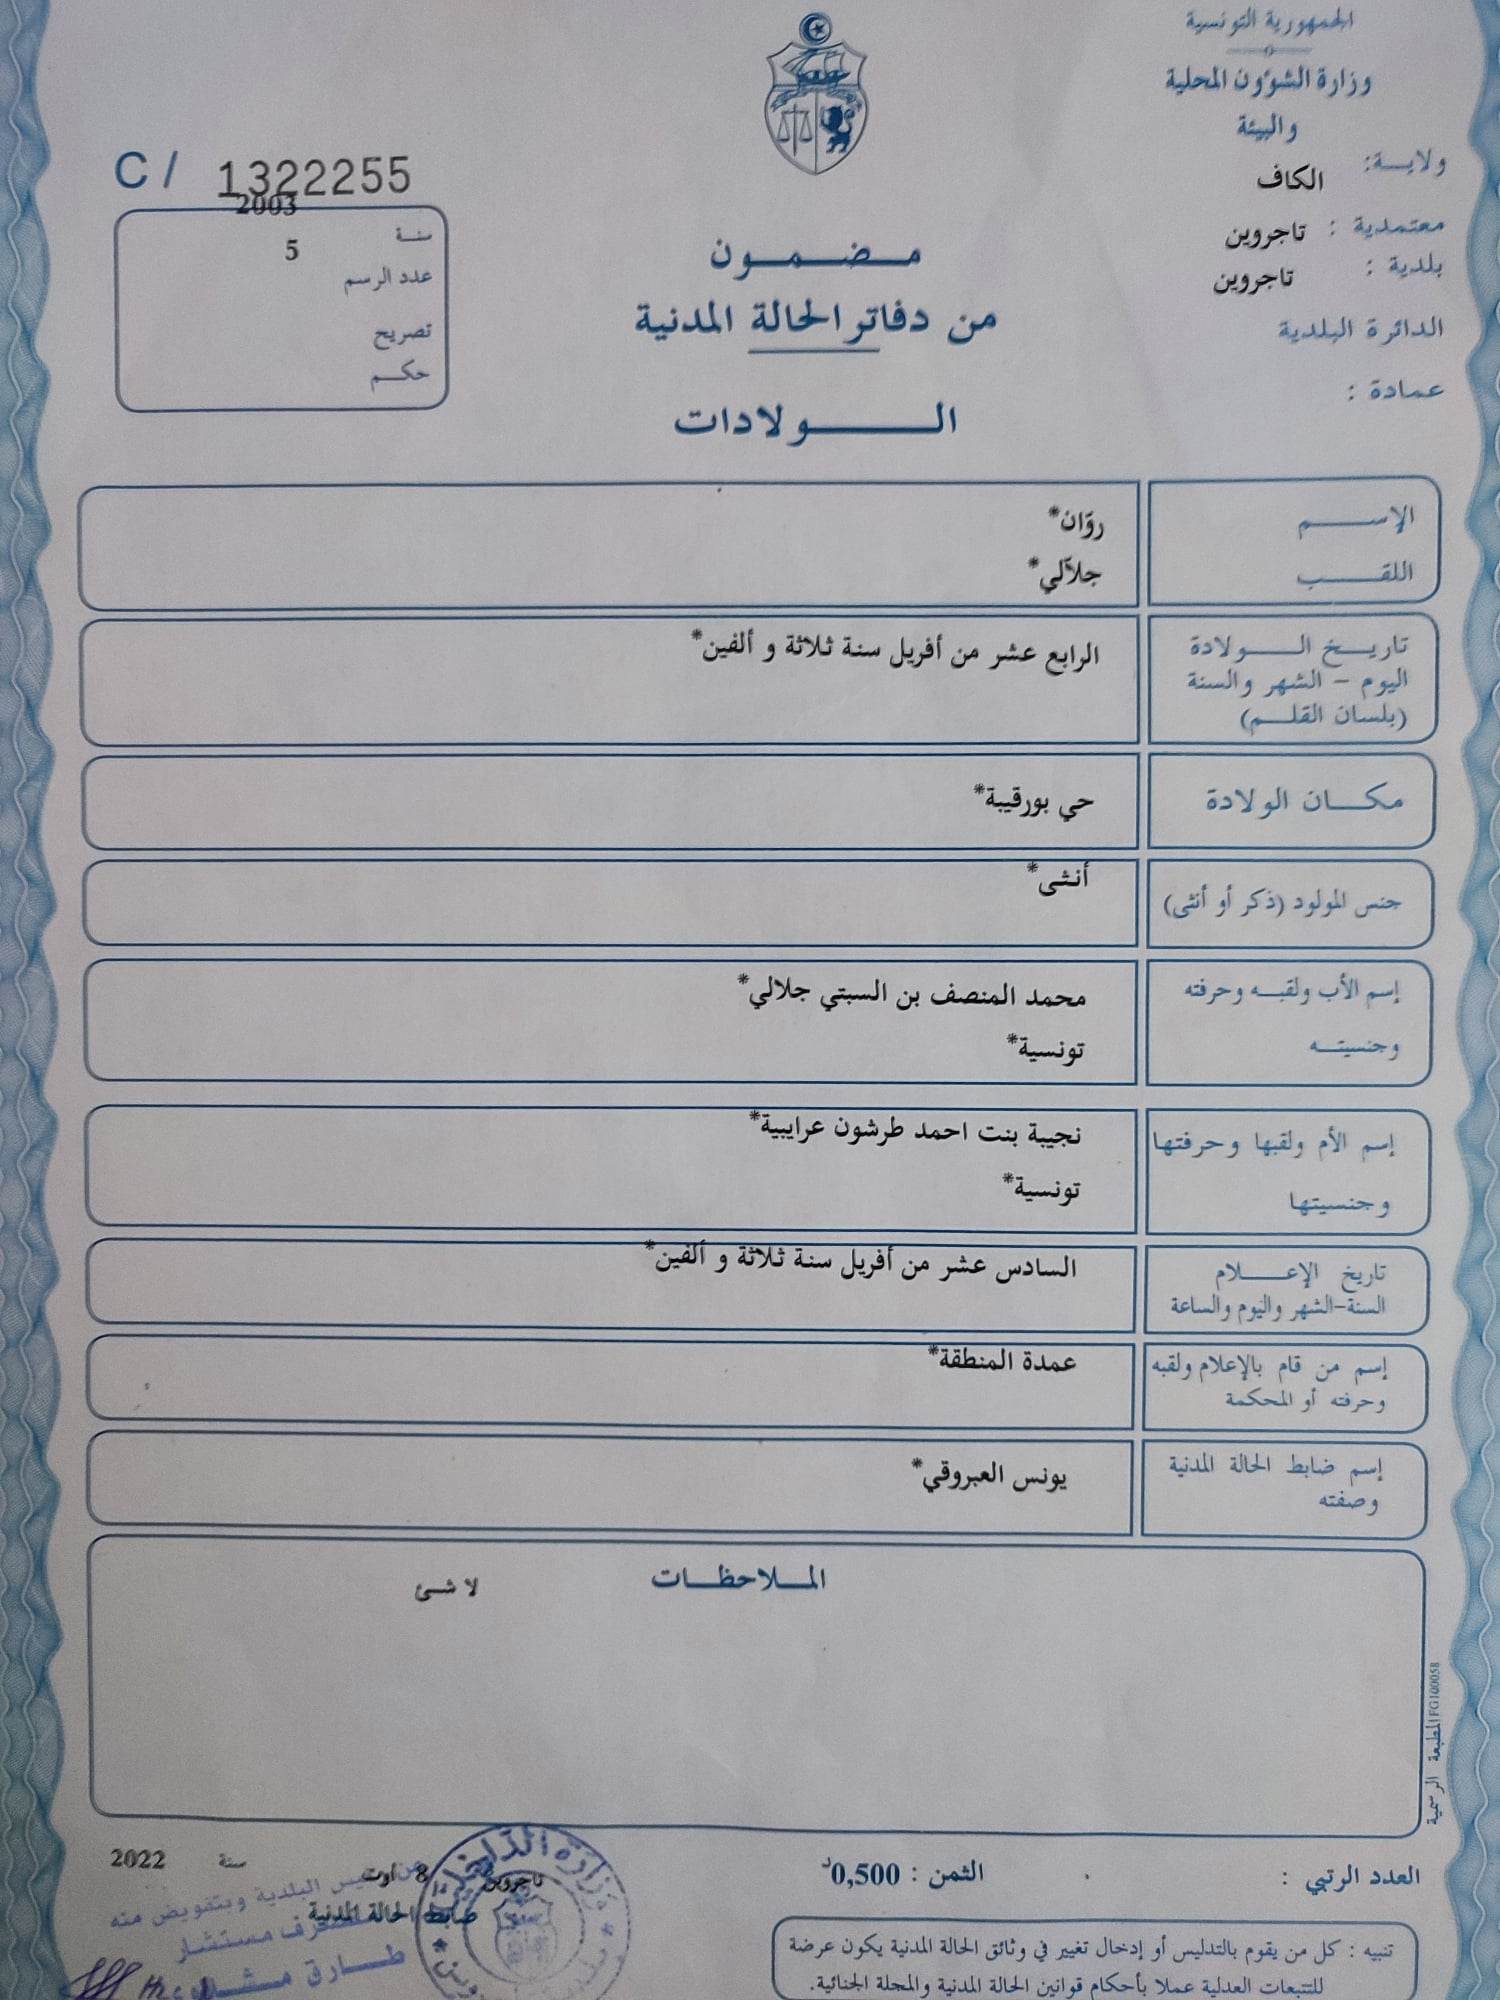 الجمهورية التونسية
وزارة الشؤون المحلية
والبيئة
ولاية: الكاف
معتمدية : تاجروين
بلدية : تاجروين
الدائرة البلدية
عمادة :
C / 1322255
2003
سنة
5
عدد الرسم
تصريح
حكم
مضمون
من دفاتر الحالة المدنية
الولادات
الإسم روّان*
اللقب جلاّلي*
تاريخ الولادة الرابع عشر من أفريل سنة ثلاثة و ألفين*
اليوم - الشهر والسنة
(بلسان القلم)
مكان الولادة حي بورقيبة*
جنس المولود (ذكر أو أنثى) أنثى*
إسم الأب ولقبه وحرفته محمد المنصف بن السبتي جلالي*
وجنسيته تونسية*
إسم الأم ولقبها وحرفتها نجيبة بنت احمد طرشون عرايبية*
وجنسيتها تونسية*
تاريخ الإعلام السادس عشر من أفريل سنة ثلاثة و ألفين*
السنة-الشهر واليوم والساعة
إسم من قام بالإعلام ولقبه عمدة المنطقة*
وحرفته أو المحكمة
إسم ضابط الحالة المدنية يونس العبروقي*
وصفته
الملاحظات لا شئ
المطبعة الرسمية FG100058
العدد الرتبي :
الثمن : 0,500د
تاجروين 8 أوت سنة 2022
ضابط الحالة المدنية
وزارة الداخلية
رئيس البلدية وبتفويض منه
مستشار
طارق
تنبيه : كل من يقوم بالتدليس أو إدخال تغيير في وثائق الحالة المدنية يكون عرضة
للتتبعات العدلية عملا بأحكام قوانين الحالة المدنية والمجلة الجنائية.